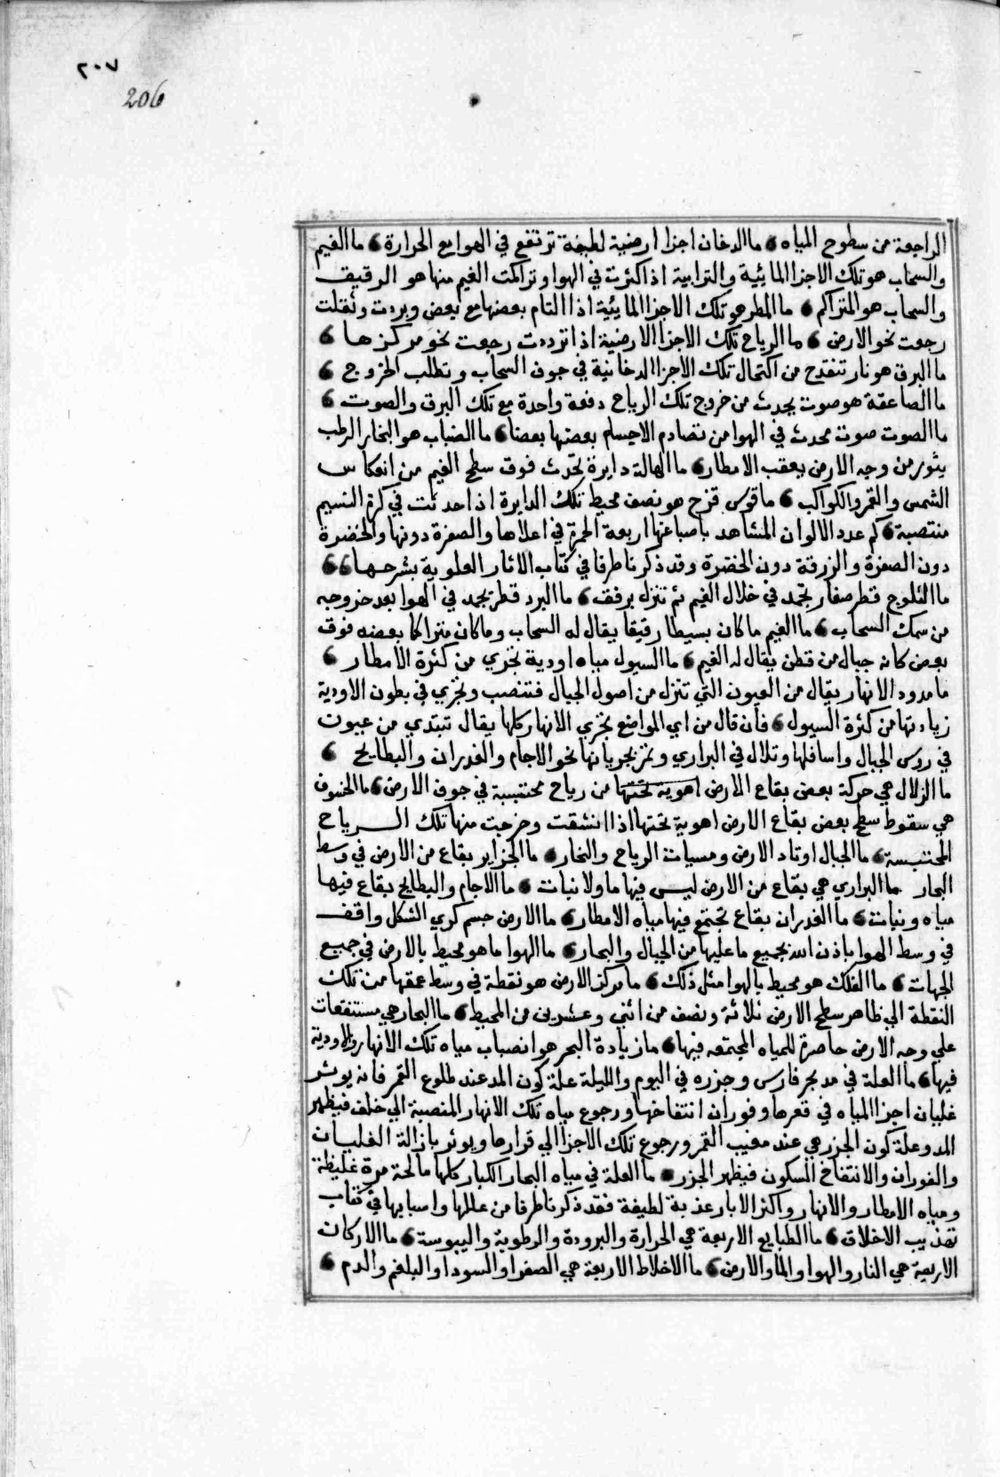 ٢٠٧
206
الراجعة من سطوح المياه ما الدخان اجزا ارضية لطيفة ترتفع في الهوا مع الحرارة ما الغيم
والسحاب هو تلك الاجزا المايئية والترابية اذا كثرت في الهوا وتراكمت الغيم منها هو الرقيق
والسحاب هو المتراكم ما المطر هو تلك الاجزا المايئية اذا التام بعضها مع بعض وبردت وثقلت
رجعت نحو الارض ما الرياح تلك الاجزا الارضية اذا بردت رجعت نحو مركزها
ما البرق هو نار تنقدح من احتكاك تلك الاجزا الدخانية في جوف السحاب وتطلب الخروج
ما الصاعقة هو صوت يحدث من خروج تلك الرياح دفعة واحدة مع تلك البرق والصوت
ما الصوت صوت محدث في الهوا من تصادم الاجسام بعضها بعضا ما الضباب هو البخار الرطب
يثور من وجه الارض بعقب الامطار ما الهالة دايرة تحدث فوق سطح الغيم من انعكاس
الشمس والقمر والكواكب ما قوس قزح هو نصف محيط تلك الدايرة اذا حدثت في كرة النسيم
منتصبة كم عدد الالوان المشاهد باصباغها اربعة الحمرة في اعلاها والصفرة دونها والخضرة
دون الصفرة والزرقة دون الخضرة وقد ذكرنا طرفا في كتاب الاثار العلوية بشرحها
ما الثلوج قطر صغار تجمد في خلال الغيم ثم تنزل برفق ما البرد قطر يجمد في الهوا بعد خروجه
من سمك السحاب ما الغيم ما كان بسيطا رقيقا يقال له السحاب وما كان متراكما بعضه فوق
بعض كانه جبال من قطن يقال له الغيم ما السيول مياه اودية تجري من كثرة الامطار
ما مدود الانهار يقال من العيون التي تنزل من اصول الجبال فتنصب وتجري في بطون الاودية
زيادتها من كثرة السيول فان قال من اي المواضع تجري الانهار كلها يقال تبتدي من عيون
في روس الجبال واسافلها وتلال في البراري وتمر بجريانها نحو الاجام والغدران والبطايح
ما الزلال هي حركة بعض بقاع الارض اهوية تحتها من رياح محتبسة في جوف الارض ما الخسوف
هي سقوط سطح بعض بقاع الارض اهوية تحتها اذا انشقت وخرجت منها تلك الرياح
المحتبسة ما الجبال اوتاد الارض ومسيات الرياح والبخار ما الجزاير بقاع من الارض في وسط
البحار ما البراري هي بقاع من الارض ليس فيها ما ولا نبات ما الاجام والبطايح بقاع فيها
مياه ونبات ما الغدران بقاع تجتمع فيها مياه الامطار ما الارض جسم كري الشكل واقف
في وسط الهوا باذن الله بجميع ما عليها من الجبال والبحار ما الهوا ما هو محيط بالارض في جميع
الجهات ما الفلك هو محيط بالهوا مثل ذلك ما مركز الارض هو نقطة في وسط عمقها من تلك
النقطة الي ظاهر سطح الارض ثلاثة ونصف من اثني وعشرين من المحيط ما البحار هي مستنقعات
علي وجه الارض حاصرة للمياه المجتمعه فيها ما زيادة البحر هو انصباب مياه تلك الانهار والاودية
فيها ما العلة في مد بحر فارس وجزره في اليوم والليلة علة كون المد عند طلوع القمر فانه يوثر
غليان اجزا المياه في قعرها وفوران انتفاخها ورجوع مياه تلك الانهار المنصبة الي خلف فيظهر
المد وعلة كون الجزر هي عند مغيب القمر ورجوع تلك الاجزا الي قرارها ويوثر بازالة الغليان
والفوران والانتفاخ السكون فيظهر الجزر ما العلة في مياه البحار الكبار كلها مالحة مرة غليظة
ومياه الامطار والانهار واكثر الابار عذبة لطيفة فقد ذكرنا طرفا من عللها واسبابها في كتاب
تهذيب الاخلاق ما الطبايع الاربعة هي الحرارة والبرودة والرطوبة واليبوسة ما الاركان
الاربعة هي النار والهوا والما والارض ما الاخلاط الاربعة هي الصفرا والسودا والبلغم والدم